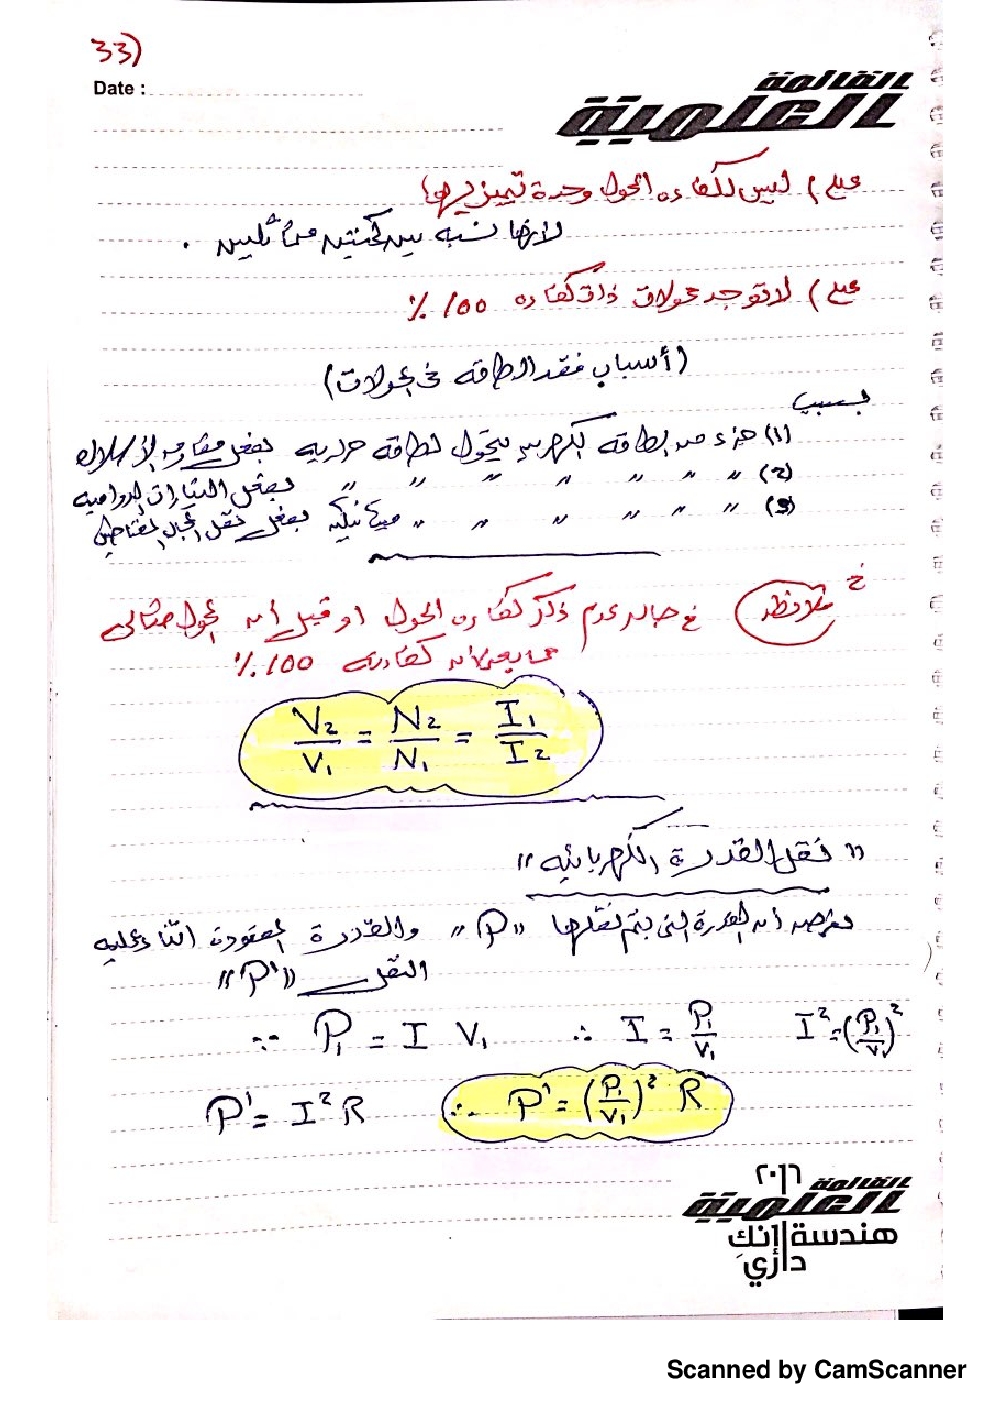 33)
Date :
القائمة
العلمية
علل ) ليس لكفاءه المحول وحدة تميز يرها
لانها نسبه بين كميتين متماثلين .
علل ) لا توجد محولات ذات كفاءه 100 %
(أسباب فقد الطاقه في المحولات)
بسبب
(1) جزء من الطاقه الكهربيه يتحول لطاقه حراريه بفعل مقاومه الأسلاك
(2) " " " " " " " بفعل التيارات الدواميه
(3) " " " " " " ميكانيكيه بفعل نقل المجال المغناطيسي
ملاحظه في حاله عدم ذكر كفاءه المحول او قيل أنه محول مثالي
مما يعني أنه كفاءته 100 %
V2/V1 = N2/N1 = I1/I2
" نقل القدرة الكهربائيه "
بفرض أنه القدرة التي يتم نقلها "P" والقدرة المفقودة اثناء عمليه
النقل "P'"
∵ P1 = I V1 ∴ I = P1/V1 I² = (P1/V1)²
P' = I² R ∴ P' = (P1/V1)² R
٢٠١٦
القائمة
العلمية
هندسة إنك
داري
Scanned by CamScanner